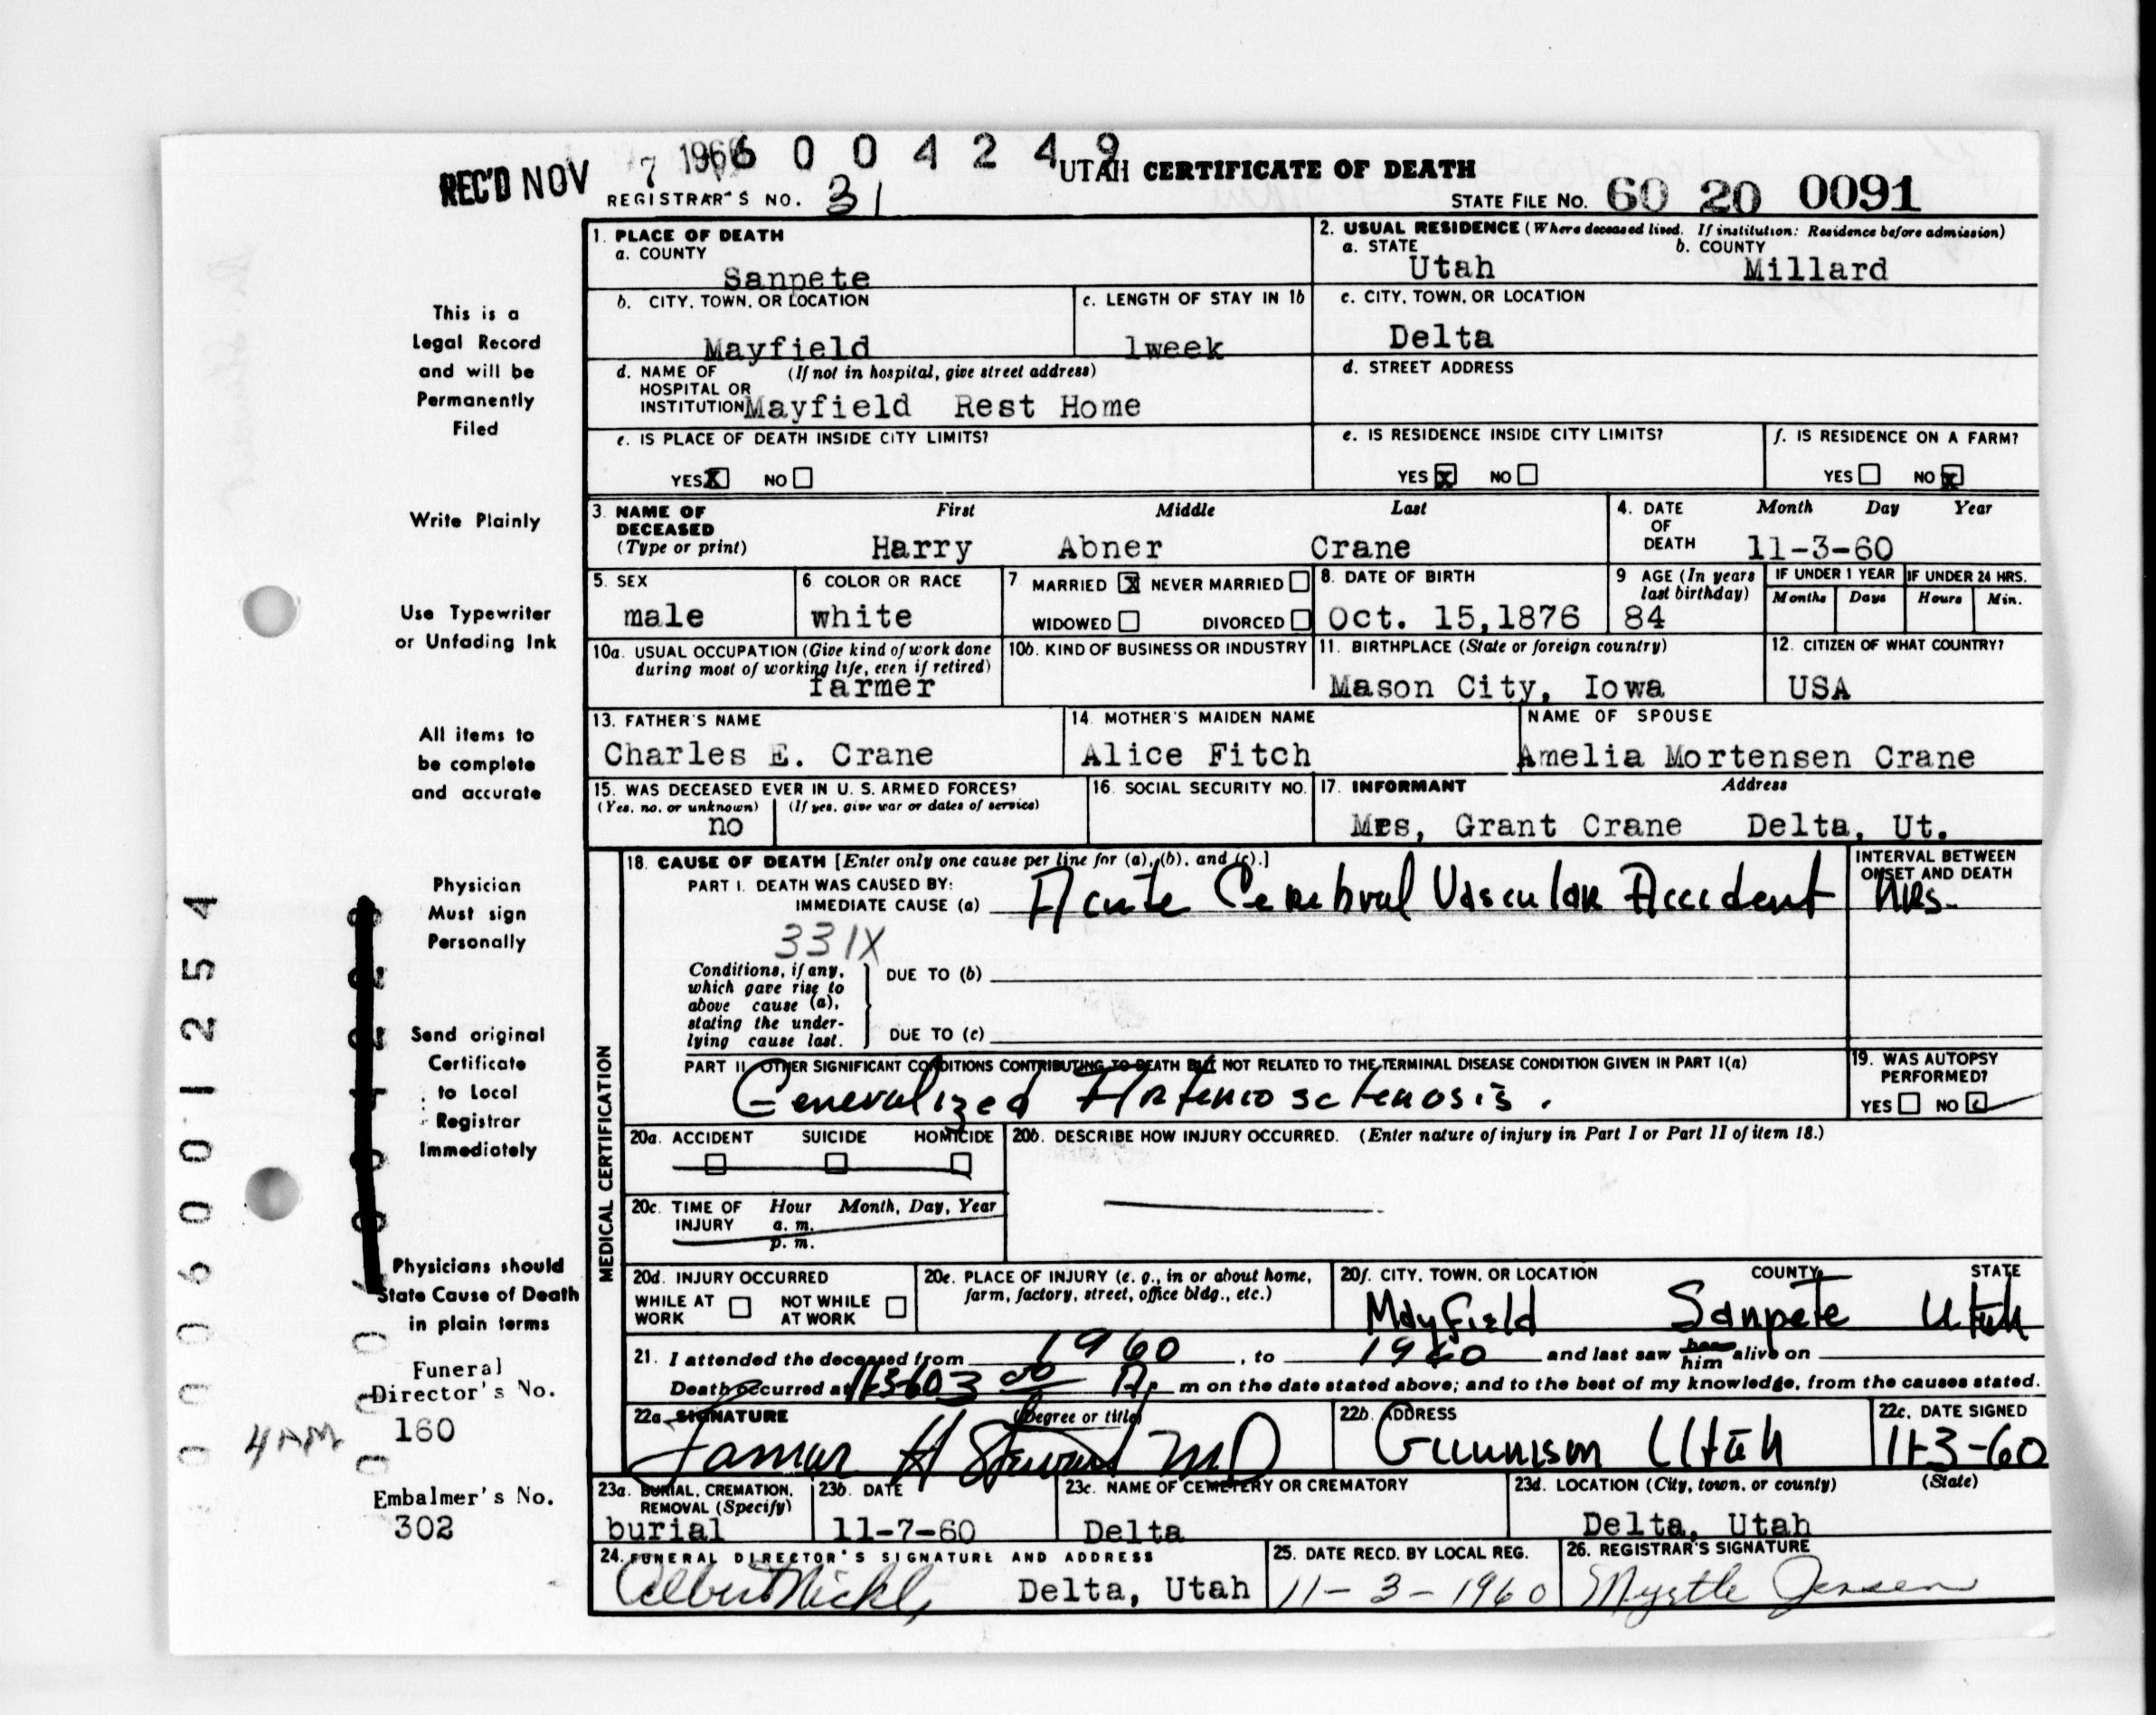 REC'D NOV 7 1960
6004249
UTAH CERTIFICATE OF DEATH
REGISTRAR'S NO. 31
STATE FILE NO. 60 20 0091
1. PLACE OF DEATH
a. COUNTY
Sanpete
2. USUAL RESIDENCE (Where deceased lived. If institution: Residence before admission)
a. STATE b. COUNTY
Utah Millard
b. CITY, TOWN, OR LOCATION
Mayfield
c. LENGTH OF STAY IN 1b
1week
c. CITY, TOWN, OR LOCATION
Delta
d. NAME OF (If not in hospital, give street address)
HOSPITAL OR
INSTITUTION Mayfield Rest Home
d. STREET ADDRESS
e. IS PLACE OF DEATH INSIDE CITY LIMITS?
YES X NO
e. IS RESIDENCE INSIDE CITY LIMITS?
YES X NO
f. IS RESIDENCE ON A FARM?
YES NO X
3. NAME OF DECEASED
(Type or print)
First Middle Last
Harry Abner Crane
4. DATE OF DEATH
Month Day Year
11-3-60
5. SEX
male
6. COLOR OR RACE
white
7. MARRIED X NEVER MARRIED
WIDOWED DIVORCED
8. DATE OF BIRTH
Oct. 15,1876
9 AGE (In years
last birthday)
84
IF UNDER 1 YEAR IF UNDER 24 HRS.
Months Days Hours Min.
10a. USUAL OCCUPATION (Give kind of work done
during most of working life, even if retired)
farmer
10b. KIND OF BUSINESS OR INDUSTRY
11. BIRTHPLACE (State or foreign country)
Mason City, Iowa
12. CITIZEN OF WHAT COUNTRY?
USA
13. FATHER'S NAME
Charles E. Crane
14. MOTHER'S MAIDEN NAME
Alice Fitch
NAME OF SPOUSE
Amelia Mortensen Crane
15. WAS DECEASED EVER IN U. S. ARMED FORCES?
(Yes, no, or unknown) (If yes, give war or dates of service)
no
16. SOCIAL SECURITY NO.
17. INFORMANT Address
Mrs, Grant Crane Delta, Ut.
MEDICAL CERTIFICATION
18. CAUSE OF DEATH [Enter only one cause per line for (a), (b), and (c).]
PART I. DEATH WAS CAUSED BY:
IMMEDIATE CAUSE (a) Acute Cerebral Vascular Accident
INTERVAL BETWEEN
ONSET AND DEATH
hrs.
331X
Conditions, if any,
which gave rise to
above cause (a),
stating the under-
lying cause last.
DUE TO (b)
DUE TO (c)
PART II. OTHER SIGNIFICANT CONDITIONS CONTRIBUTING TO DEATH BUT NOT RELATED TO THE TERMINAL DISEASE CONDITION GIVEN IN PART I(a)
Generalized Arteriosclerosis.
19. WAS AUTOPSY
PERFORMED?
YES NO
20a. ACCIDENT SUICIDE HOMICIDE
20b. DESCRIBE HOW INJURY OCCURRED. (Enter nature of injury in Part I or Part II of item 18.)
20c. TIME OF INJURY
Hour Month, Day, Year
a. m.
p. m.
20d. INJURY OCCURRED
WHILE AT WORK NOT WHILE AT WORK
20e. PLACE OF INJURY (e. g., in or about home,
farm, factory, street, office bldg., etc.)
20f. CITY, TOWN, OR LOCATION COUNTY STATE
Mayfield Sanpete Utah
21. I attended the deceased from 1960, to 1960 and last saw her him alive on
Death occurred at 11-3-60 3 00 A. m on the date stated above; and to the best of my knowledge, from the causes stated.
22a. SIGNATURE (Degree or title)
Lamar H Stewart MD
22b. ADDRESS
Gunnison Utah
22c. DATE SIGNED
11-3-60
23a. BURIAL, CREMATION,
REMOVAL (Specify)
burial
23b. DATE
11-7-60
23c. NAME OF CEMETERY OR CREMATORY
Delta
23d. LOCATION (City, town, or county) (State)
Delta, Utah
24. FUNERAL DIRECTOR'S SIGNATURE AND ADDRESS
Albert Nickle Delta, Utah
25. DATE RECD. BY LOCAL REG.
11-3-1960
26. REGISTRAR'S SIGNATURE
Myrtle Jensen
This is a
Legal Record
and will be
Permanently
Filed
Write Plainly
Use Typewriter
or Unfading Ink
All items to
be complete
and accurate
Physician
Must sign
Personally
Send original
Certificate
to Local
Registrar
Immediately
Physicians should
State Cause of Death
in plain terms
Funeral
Director's No.
160
Embalmer's No.
302
4 AM
0006001254